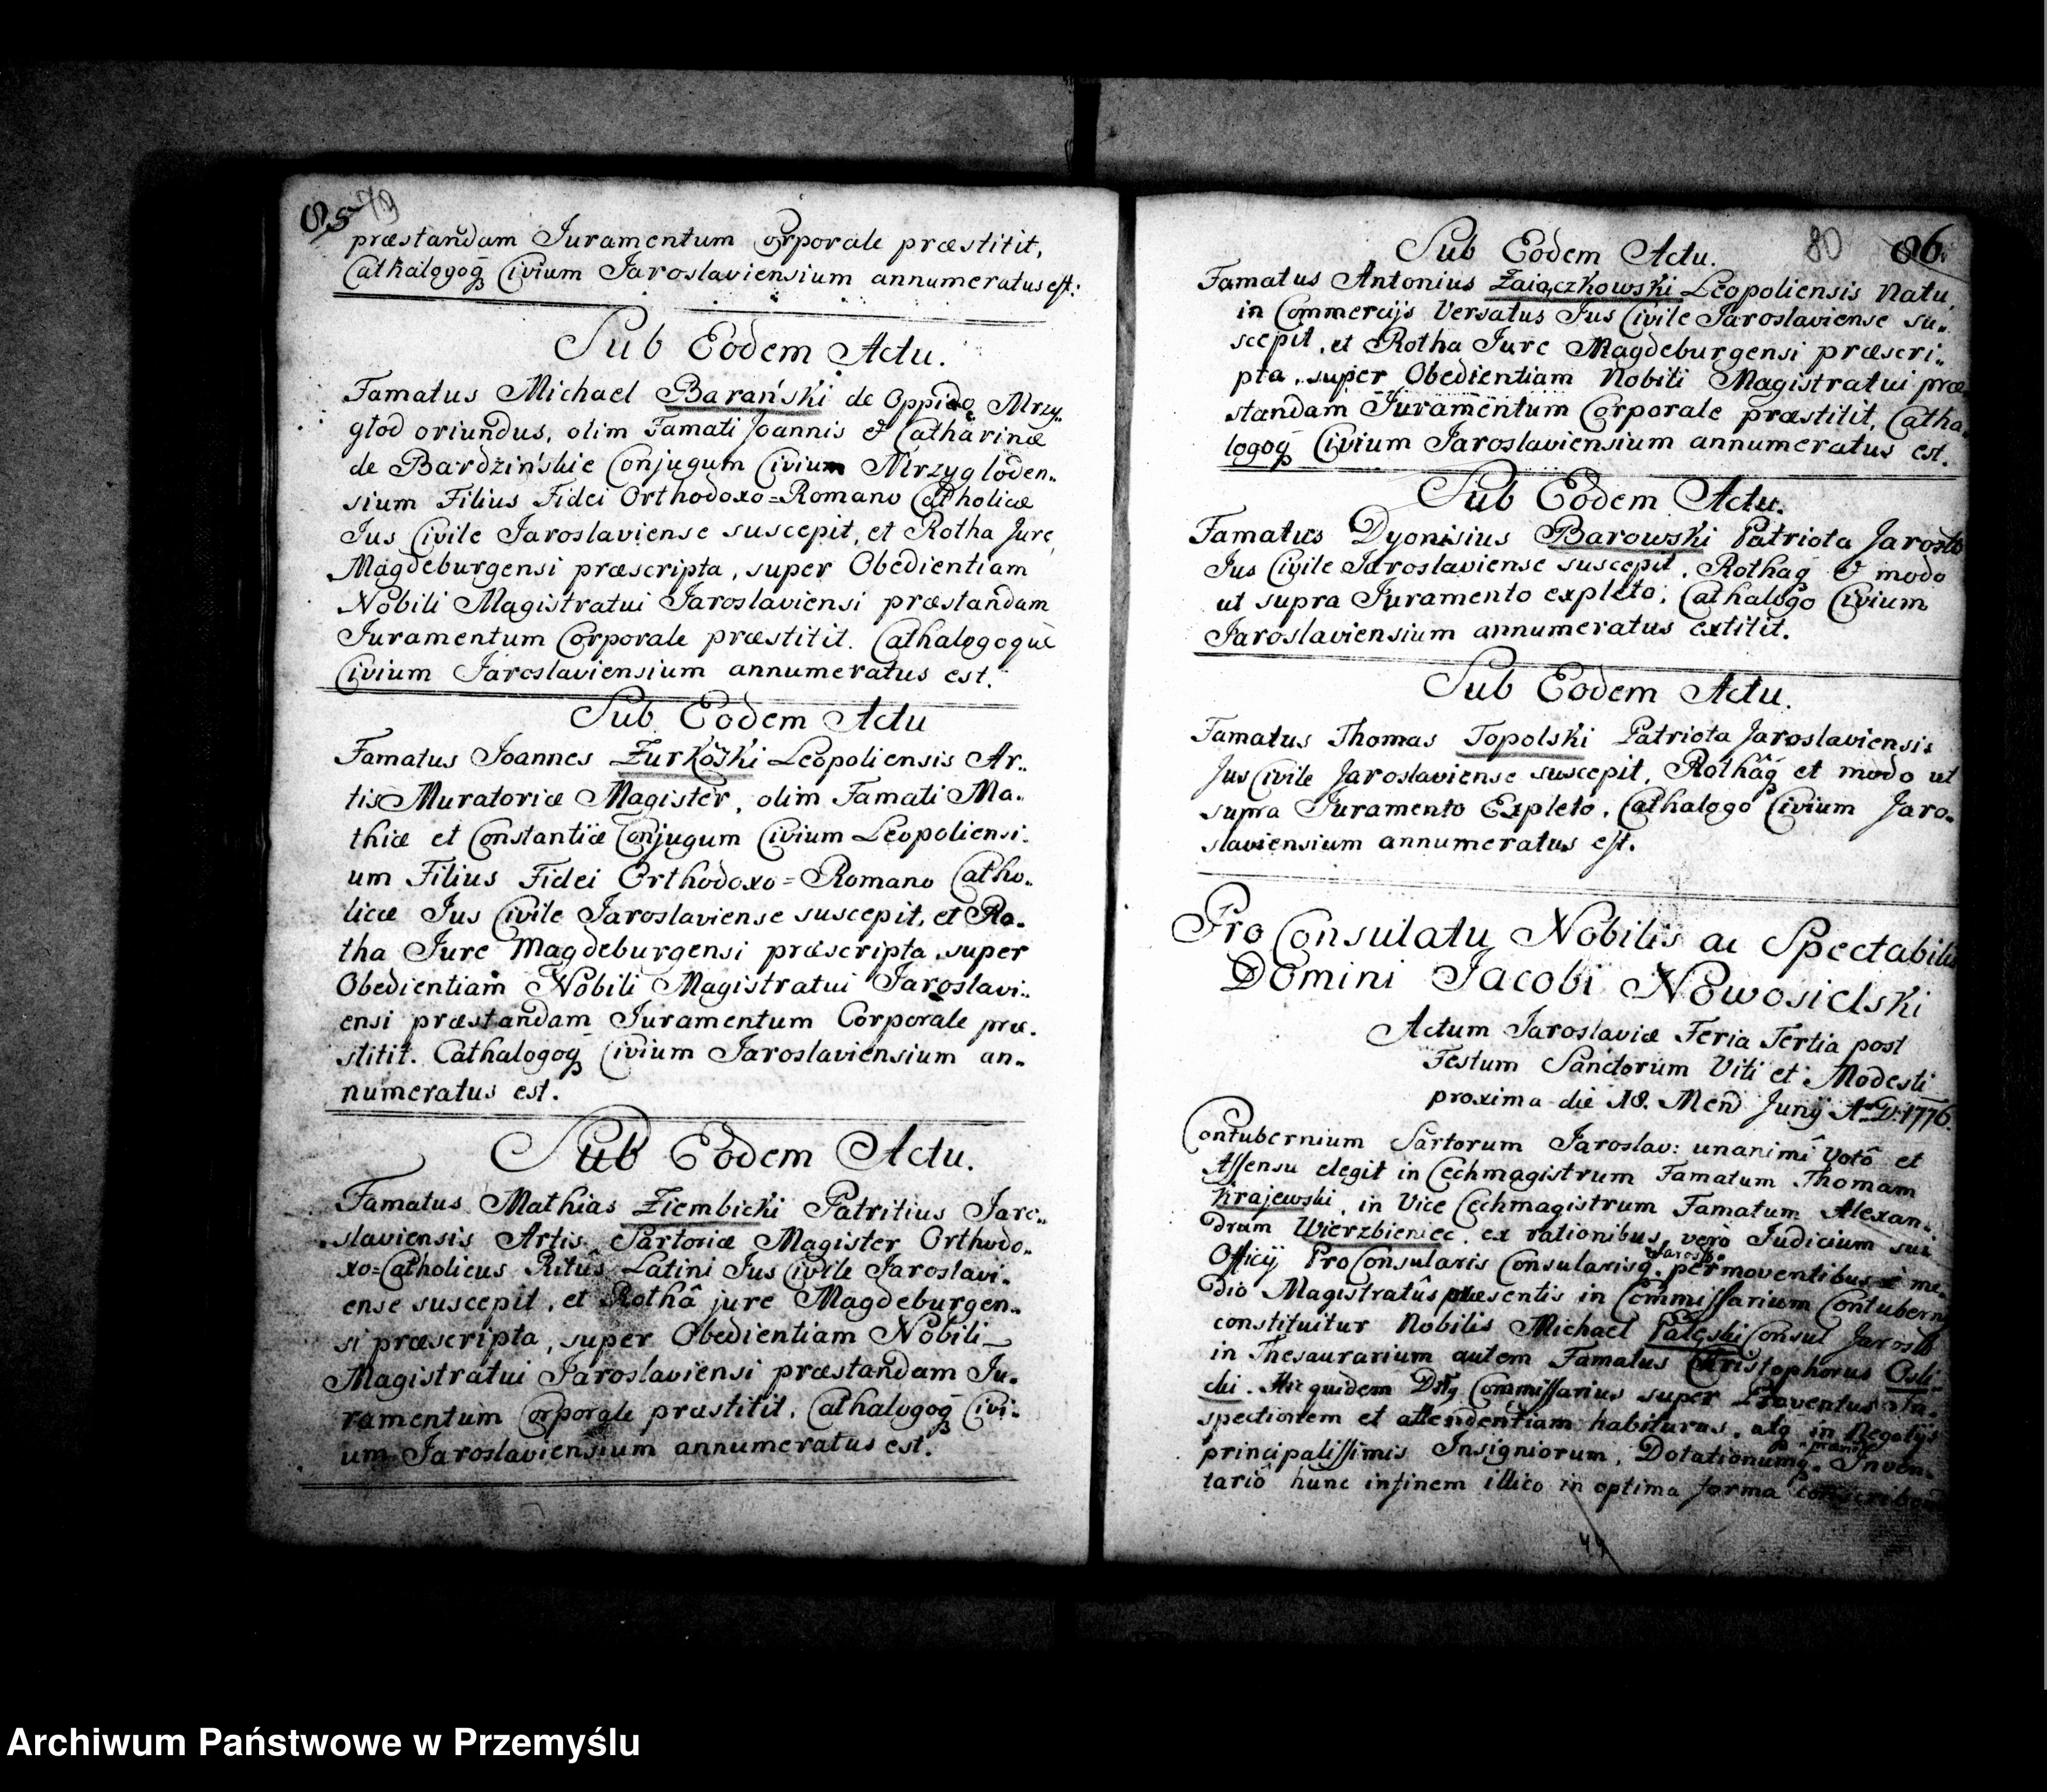 85 79
præstandam Iuramentum Corporale præstitit,
Cathalogoq̃ Civium Iaroslaviensium annumeratus est:
Sub Eodem Actu.
Famatus Michael Barański de Oppido Mrzy„
głod oriundus, olim Famati Joannis et Catharinæ
de Bardzińskie Conjugum Civium Mrzygloden„
sium Filius Fidei Orthodoxo=Romano Catholicæ
Jus Civile Iaroslaviense suscepit, et Rotha Jure
Magdeburgensi præscripta, super Obedientiam
Nobili Magistratui Iaroslaviensi præstandam
Iuramentum Corporale præstitit. Cathalogoque
Civium Iaroslaviensium annumeratus est.
Sub Eodem Actu
Famatus Joannes Żurkoski Leopoliensis Ar„
tis Muratoriæ Magister, olim Famati Ma„
thiæ et Constantiæ Conjugum Civium Leopoliensi„
um Filius Fidei Orthodoxo=Romano Catho„
licæ Jus Civile Iaroslaviense suscepit, et Ro„
tha Jure Magdeburgensi præscripta, super
Obedientiam Nobili Magistratui Iaroslavi„
ensi præstandam Iuramentum Corporale præ„
stitit. Cathalogoq̃ Civium Iaroslaviensium an„
numeratus est.
Sub Eodem Actu.
Famatus Mathias Ziembicki Patritius Jaro„
slaviensis Artis Sartoriæ Magister Orthodo„
xo=Catholicus Ritûs Latini Jus Civile Iaroslavi„
ense suscepit, et Rothâ jure Magdeburgen„
si præscripta, super Obedientiam Nobili
Magistratui Iaroslaviensi præstandam Iu„
ramentum Corporale præstitit. Cathalogoq̃ Civi„
um Iaroslaviensium annumeratus est.
80 86.
Sub Eodem Actu.
Famatus Antonius Zaiączkowski Leopoliensis Natu
in Commercijs Versatus Jus Civile Iaroslaviense su„
scepit, et Rotha Jure Magdeburgensi præscri„
pta, super Obedientiam Nobili Magistratui præ
standam Iuramentum Corporale præstitit, Catha„
logoq̃ Civium Iaroslaviensium annumeratus est.
Sub Eodem Actu.
Famatus Dyonisius Barowski Patriota Jarosł
Jus Civile Iaroslaviense suscepit, Rothaq̃ & modo
ut supra Juramento expleto, Cathalogo Civium
Iaroslaviensium annumeratus extitit.
Sub Eodem Actu.
Famatus Thomas Topolski Patriota Jaroslaviensis
Jus Civile Jaroslaviense suscepit, Rothâq̃ et modo ut
supra Juramento Expleto, Cathalogo Civium Jaro„
slaviensium annumeratus est.
Pro Consulatu Nobilis ac Spectabilis
Domini Jacobi Nowosielski
Actum Iaroslaviæ Feria Tertia post
Festum Sanctorum Viti et Modesti
proxima die 18. Mens Junij A D: 1776.
Contubernium Sartorum Jaroslav: unanimi Votô et
Assensu elegit in Cechmagistrum Famatum Thomam
Krajewski, in Vice Cechmagistrum Famatum Alexan„
drum Wierzbieniec. ex rationibus, verò Judicium sui
Officij Pro Consularis Consularisq̃ Jarosł. permoventibus è me„
dio Magistratûs præsentis in Commissarium Contubern
constituitur Nobilis Michael Paleski Consul Jarosł
in Thesaurarium autem Famatus Christophorus Osli„
cki. Hic quidem Commissarius super Proventus In„
spectionem et attendentiam habiturus, atq̃ in Negotijs
principalissimis Insigniorum, Dotationumq̃ Inven„
tariô hunc in finem illico in optima forma
44
Archiwum Państwowe w Przemyślu